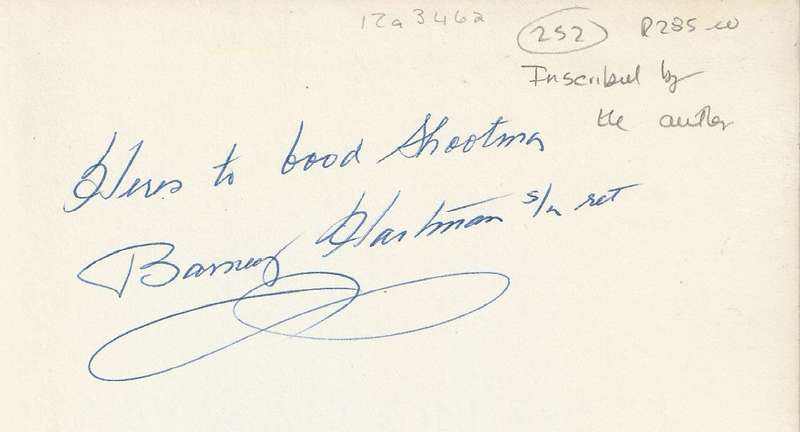 12a3462
252 R285.00
Inscribed by
the author
Heres to Good Shooting
Barney Hartman s/L ret